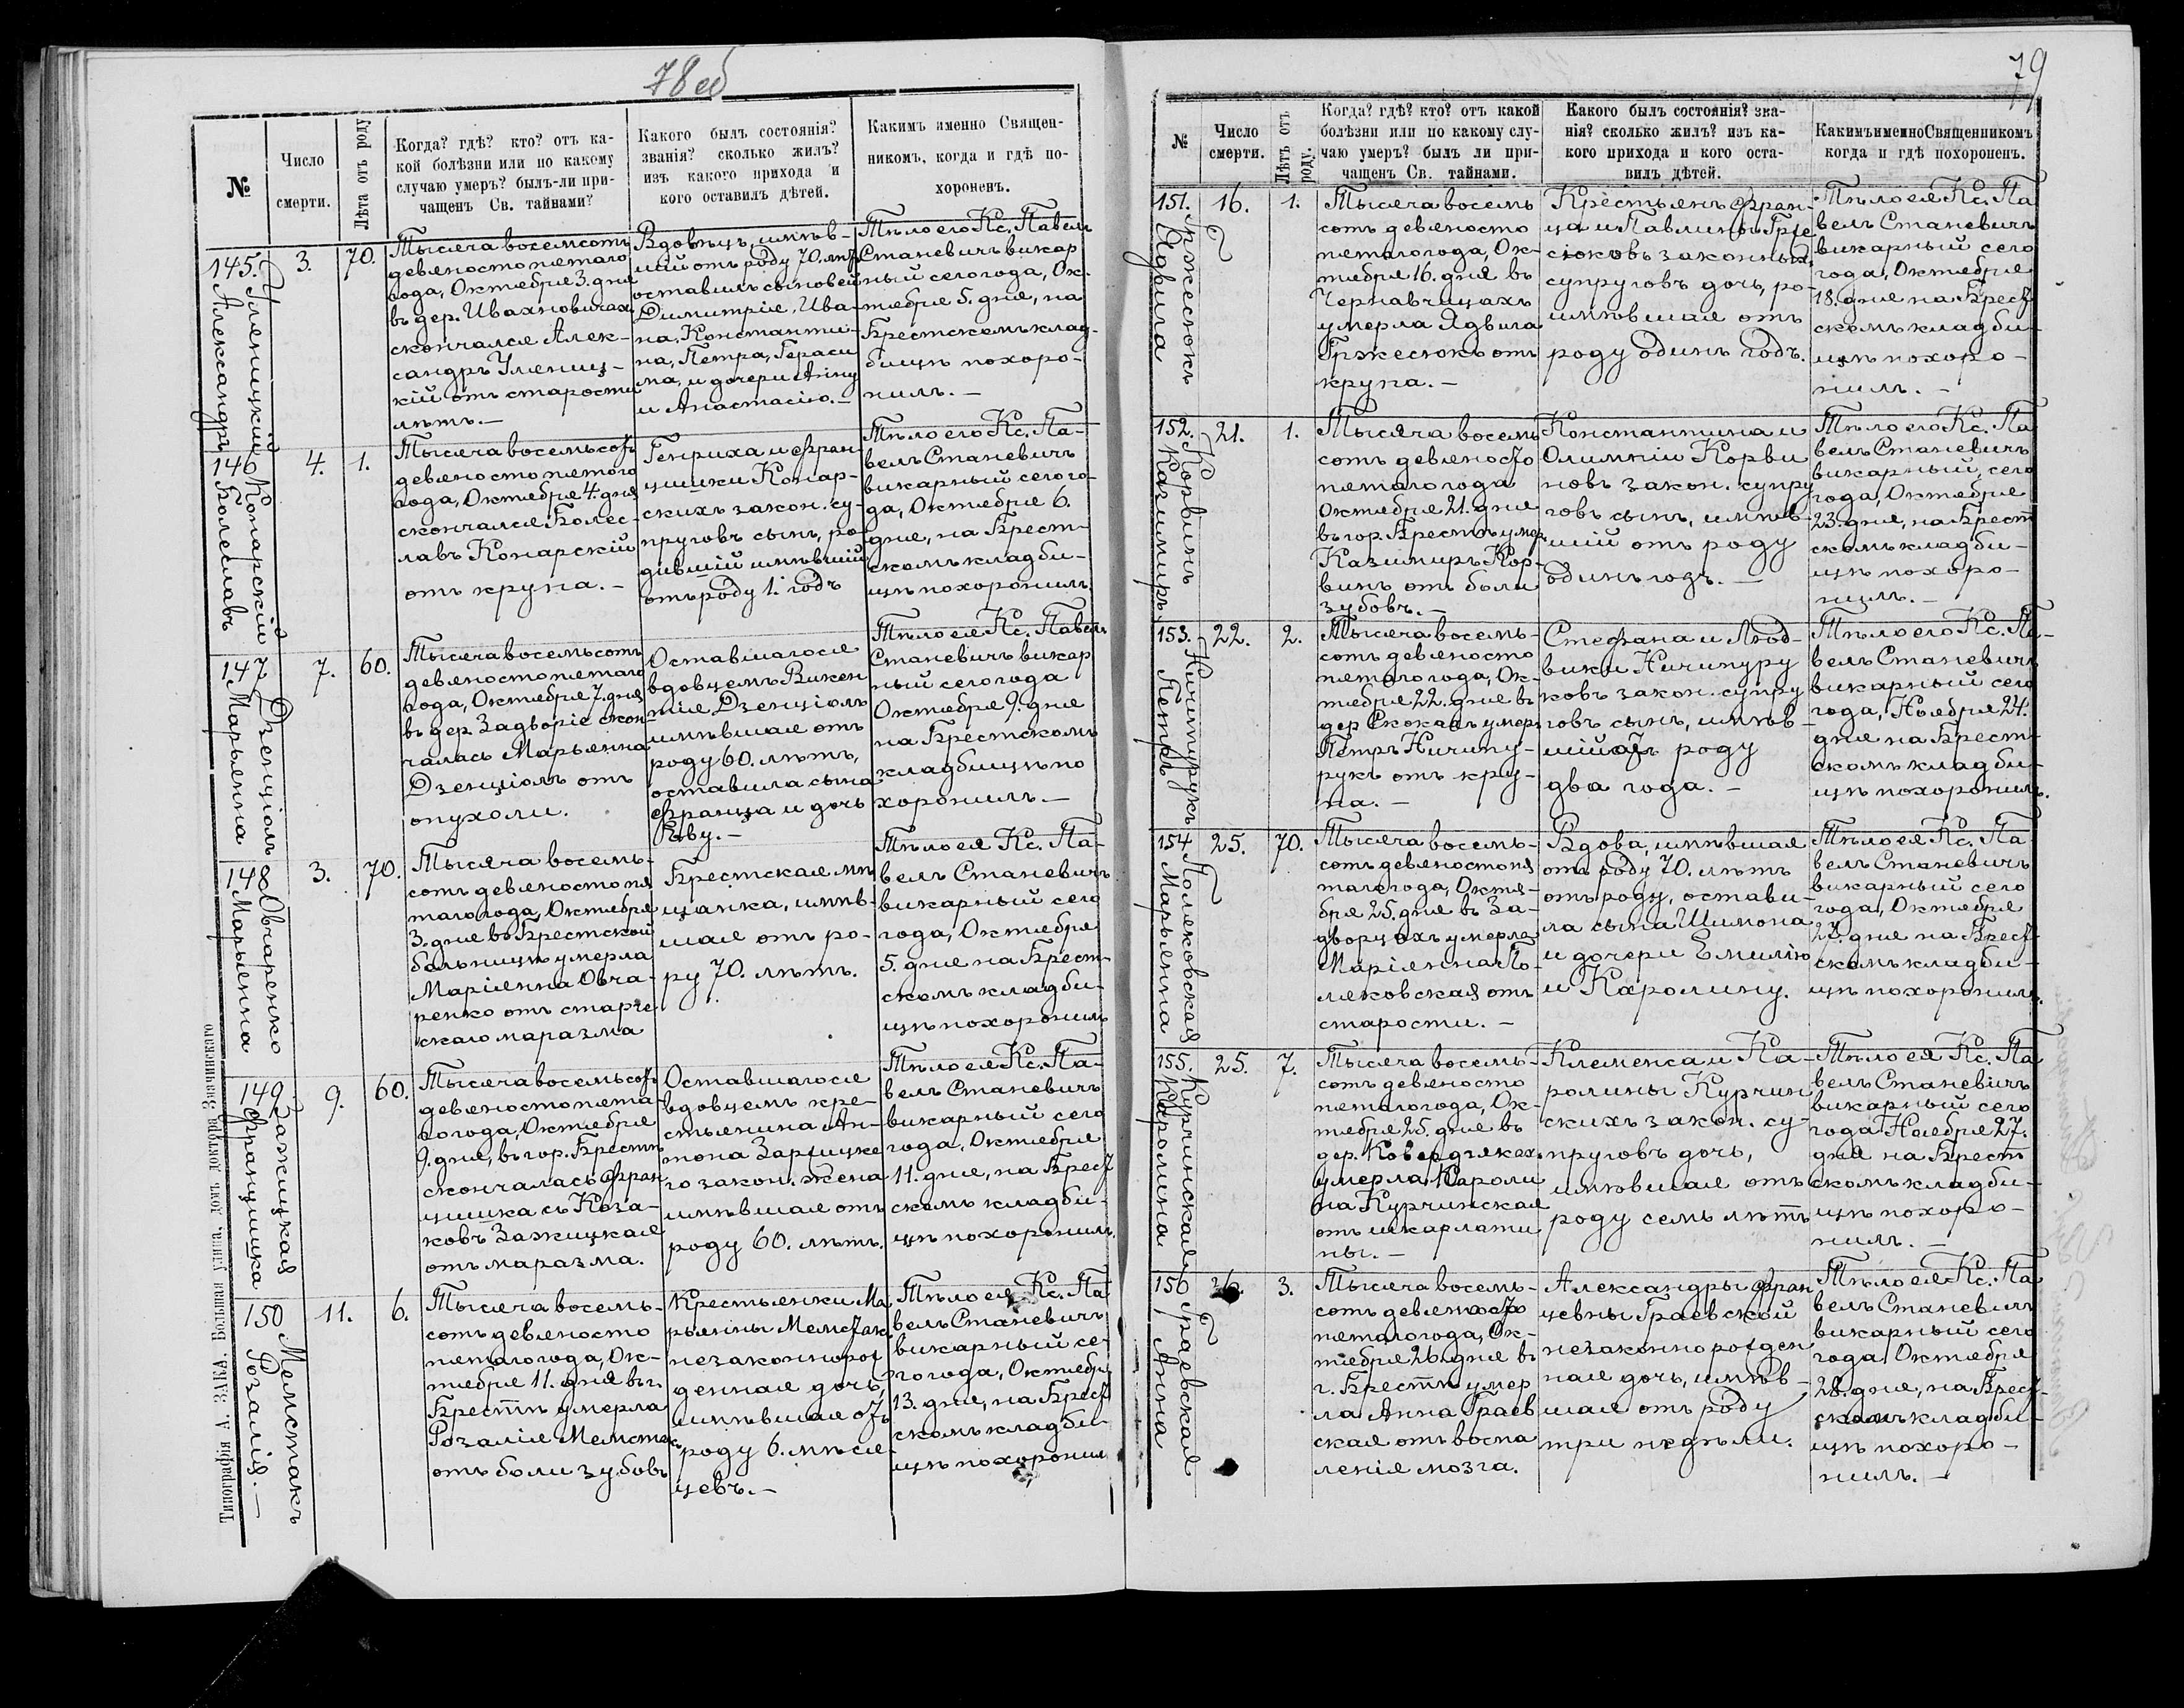 78 об
№
Число
смерти.
Лѣта отъ роду
Когда? гдѣ? кто? отъ ка-
кой болѣзни или по какому
случаю умеръ? былъ-ли при-
чащенъ Св. тайнами?
Какого былъ состоянія?
званія? сколько жилъ?
изъ какого прихода и
кого оставилъ дѣтей.
Какимъ именно Священ-
никомъ, когда и гдѣ по-
хороненъ.
145.
Уленицкій
Александръ
3.
70.
Тысяча восемсотъ
девяносто пятаго
года, Октября 3. дня
въ дер. Ивахновичах
скончался Алек-
сандръ Улениц-
кій отъ старости
лѣтъ.—
Вдовецъ, имѣв-
шій отъ роду 70. лѣтъ
оставилъ сыновей
Димитрія, Ива-
на, Константи-
на, Петра, Гераси
ма, и дочери Анну
и Анастасію.—
Тѣло его Кс. Павелъ
Станевичъ викар
ный сего года, Ок-
тября 5. дня, на
Брестскомъ клад-
бищѣ похоро-
нилъ.—
146
Конарскій
Болеславъ
4.
1.
Тысяча восемьсотъ
девяносто пятого
года, Октября 4. дня
скончался Болес-
лавъ Конарскій
отъ крупа.—
Генриха и Фран
цишки Конар-
скихъ закон. су-
пруговъ сынъ, ро
дившій имѣвшій
отъ роду 1. годъ
Тѣло его Кс. Па-
велъ Станевичъ
викарный сего го-
да, Октября 6.
дня, на Брест-
скомъ кладби-
щѣ похоронилъ.
147
Дзенціолъ
Марьянна
7.
60.
Тысяча восемьсотъ
девяносто пятаго
года, Октября 7. дня
въ дер. Задворіе скон
чалась Марьянна
Дзенціолъ отъ
опухоли.
Оставшагося
вдовцемъ Викен
тія Дзенціолъ
имѣвшая отъ
роду 60. лѣтъ,
оставила сына
Франца и дочь
Еву.—
Тѣло ея Кс. Павелъ
Станевичъ викар
ный сего года
Октября 9. дня
на Брестскомъ
кладбищѣ по
хоронилъ.—
148
Овчаренко
Марьянна
3.
70.
Тысяча восемь-
сотъ девяносто пя
таго года, Октября
3. дня въ Брестской
больницѣ умерла
Маріянна Овча-
ренко отъ старче
скаго маразма
Брестская мѣ
щанка, имѣв-
шая отъ ро-
ру 70. лѣтъ.
Тѣло ея Кс. Па-
велъ Станевичъ
викарный сего
года, Октября
5. дня на Брест-
скомъ кладби-
щѣ похоронилъ
149.
Зажицкая
Францишка
9.
60.
Тысяча восемьсотъ
девяносто пята
го года, Октября
9. дня, въ гор. Брестѣ
скончалась Фран
цишка съ Коза-
ковъ Зажицкая
отъ маразма.
Оставшагося
вдовцемъ кре-
стьянина Ан-
тона Зарицка
го закон. жена
имѣвшая отъ
роду 60. лѣтъ.
Тѣло ея Кс. Па-
велъ Станевичъ
викарный сего
года, Октября
11. дня, на Брест
скомъ кладби-
щѣ похоронилъ.
150
Мемстакъ
Розалія.—
11.
6.
Тысяча восемь-
сотъ девяносто
пятаго года, Ок-
тября 11. дня въ г.
Брестѣ умерла
Розалія Мемстакъ
отъ боли зубовъ
Крестьянки Ма
рьянны Мемстак
незаконнорож
денная дочь,
имѣвшая отъ
роду 6. мѣся
цевъ.—
Тѣло ея Кс. Па
велъ Станевичъ
викарный се-
го года, Октября
13. дня, на Брест
скомъ кладби-
щѣ похоронилъ
Типографія А. ЗАКА. Большая улица, домъ доктора Значинскаго
79
№
Число
смерти.
Лѣтъ отъ
роду.
Когда? гдѣ? кто? отъ какой
болѣзни или по какому слу-
чаю умеръ? былъ ли при-
чащенъ Св. тайнами.
Какого былъ состоянія? зва-
нія? сколько жилъ? изъ ка-
кого прихода и кого оста-
вилъ дѣтей.
Какимъ именно Священникомъ
когда и гдѣ похороненъ.
151.
Гржесюкъ
Ядвига
16.
1.
Тысяча восемь
сотъ девяносто
пятаго года, Ок-
тября 16. дня въ
Чернавчицахъ
умерла Ядвига
Гржесюкъ отъ
крупа.—
Крестьянъ Фран-
ца и Павлины Грже
сюковъ законныхъ
супруговъ дочь, ро-
имѣвшая отъ
роду одинъ годъ.
Тѣло ея Кс. Па
велъ Станевичъ
викарный сего
года, Октября
18. дня на Брест
скомъ кладби-
щѣ похоро-
нилъ.—
152.
Корвинъ
Казимиръ
21.
1.
Тысяча восемь
сотъ девяносто
пятаго года
Октября 21. дня
въ гор. Брестѣ умер
Казимиръ Кор-
винъ отъ боли
зубовъ.—
Константина и
Олимпіи Корви
новъ закон. супру
говъ сынъ, имѣв-
шій отъ роду
одинъ годъ.—
Тѣло его Кс. Па
велъ Станевичъ
викарный, сего
года, Октября
23. дня, на Брест
скомъ кладби-
щѣ похоро-
нилъ.—
153.
Ничипурукъ
Петръ
22.
2.
Тысяча восемь-
сотъ девяносто
пятаго года, Ок-
тября 22. дня въ
дер. Скокахъ умеръ
Петръ Ничипу-
рукъ отъ кру-
па.—
Стефана и Люд-
вики Ничипуру
ковъ закон. супру
говъ сынъ, имѣв-
шій отъ роду
два года.—
Тѣло его Кс. Па-
велъ Станевичъ
викарный сего
года, Ноября 24.
дня на Брест-
скомъ кладби-
щѣ похоронилъ.
154
Поляковская
Марьянна
25.
70.
Тысяча восемь-
сотъ девяносто пя
таго года, Октя-
бря 25. дня въ За-
дворцахъ умерла
Маріянна По-
ляковская отъ
старости.—
Вдова, имѣвшая
отъ роду 70. лѣтъ
отъ роду, остави-
ла сына Шимона
и дочери Емилію
и Каролину.
Тѣло ея Кс. Па
велъ Станевичъ
викарный сего
года, Октября
27. дня на Брест-
скомъ кладби-
щѣ похоронилъ.
155.
Курчинская
Каролина
25.
7.
Тысяча восемь-
сотъ девяносто
пятаго года, Ок-
тября 25. дня въ
дер. Ковердякахъ
умерла Кароли
на Курчинская
отъ шкарлати
ны.—
Клеменса и Ка-
ролины Курчин
скихъ закон. су-
пруговъ дочь,
имѣвшая отъ
роду семь лѣтъ
Тѣло ея Кс. Па
велъ Станевичъ
викарный сего
года Ноября 27.
дня на Брест
скомъ кладби-
щѣ похоро-
нилъ.—
156
Граевская
Анна
26.
3.
Тысяча восемь-
сотъ девяносто
пятаго года, Ок-
тября 26. дня въ
г. Брестѣ умер
ла Анна Граев
ская отъ воспа
ленія мозга.
Александры Фран
цевны Граевской
незаконнорожден
ная дочь, имѣв-
шая отъ роду
три недѣли.
Тѣло ея Кс. Па
велъ Станевичъ
викарный сего
года Октября
28. дня, на Брест-
скомъ кладби-
щѣ похоро-
нилъ.—